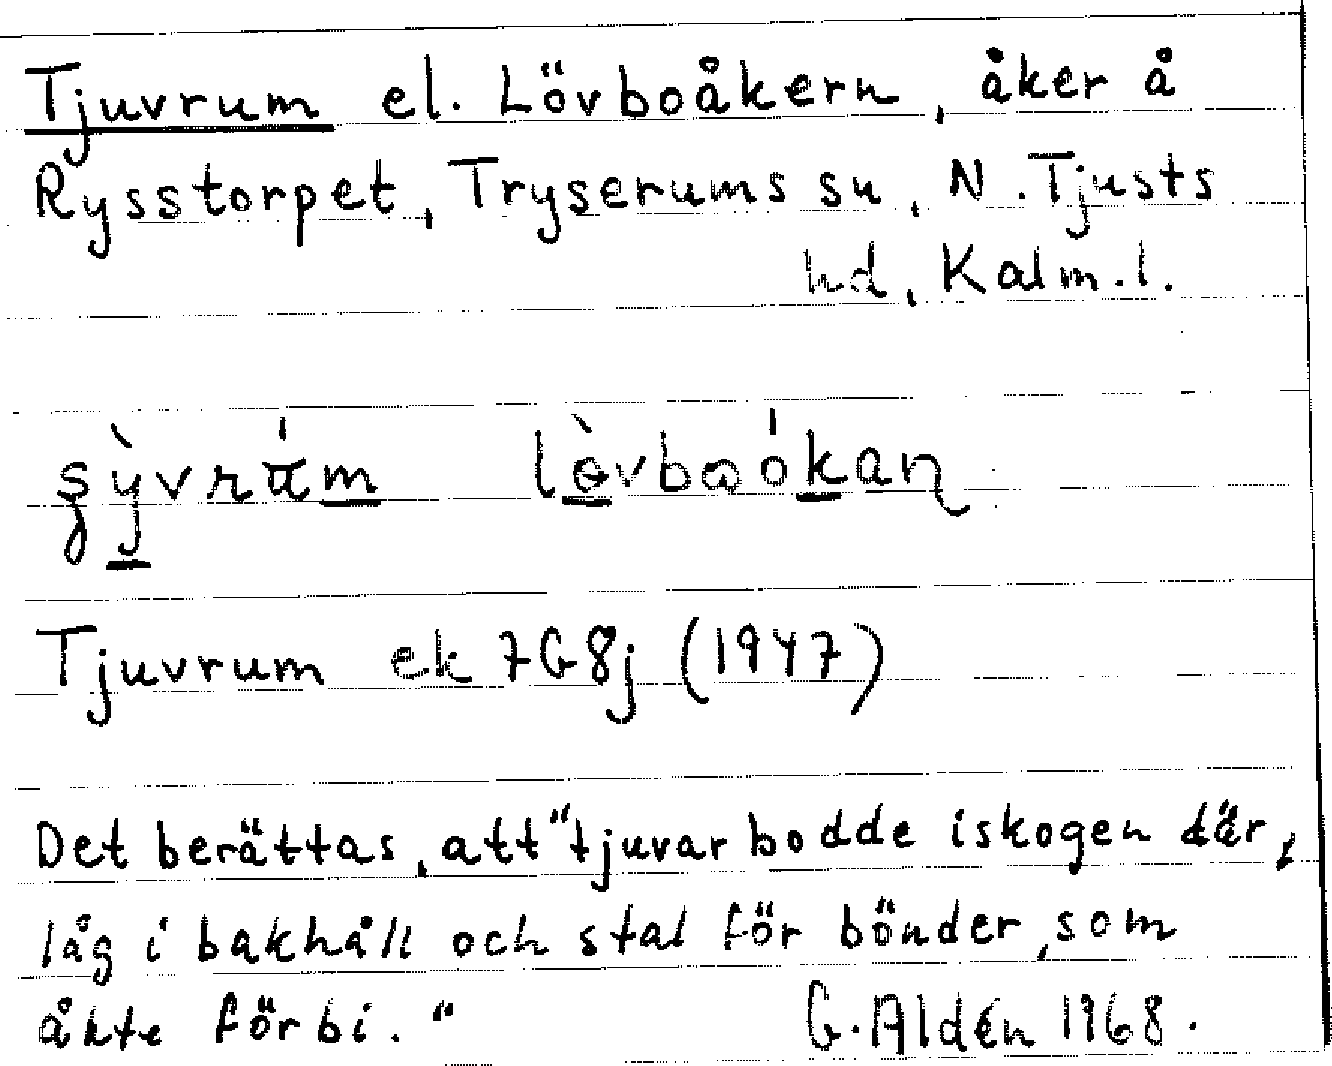 Tjuvrum el. Lövboåkern, åker å
Rysstorpet, Tryserums sn, N. Tjusts
hd, Kalm. l.
Tjuvrum ek 7G8j (1947)
Det berättas, att "tjuvar bodde i skogen där,
låg i bakhåll och stal för bönder, som
åkte förbi." G. Aldén 1968.